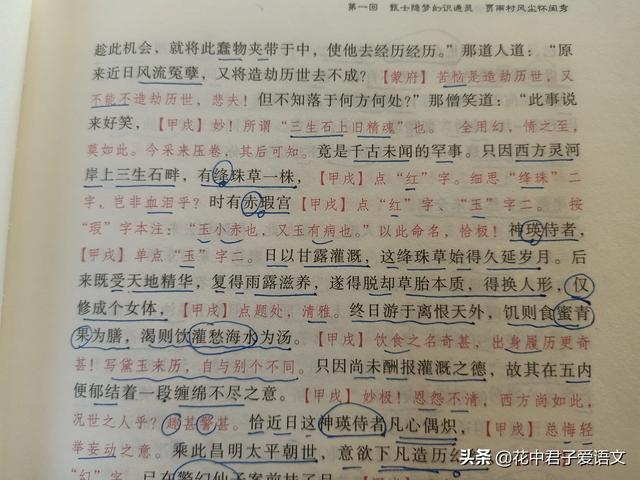 第一回 甄士隐梦幻识通灵 贾雨村风尘怀闺秀
趁此机会，就将此蠢物夹带于中，使他去经历经历。”那道人道：“原
来近日风流冤孽，又将造劫历世去不成？【蒙府】苦恼是造劫历世，又
不能不造劫历世，悲夫！但不知落于何方何处？”那僧笑道：“此事说
来好笑，【甲戌】妙！所谓“三生石上旧精魂”也。 全用幻，情之至，
莫如此。今采来压卷，其后可知。竟是千古未闻的罕事。只因西方灵河
岸上三生石畔，有绛珠草一株，【甲戌】点“红”字。细思“绛珠”二
字，岂非血泪乎？时有赤瑕宫【甲戌】点“红”字、“玉”字二。 按
“瑕”字本注：“玉小赤也，又玉有病也。”以此命名，恰极！神瑛侍者，
【甲戌】单点“玉”字二。日以甘露灌溉，这绛珠草始得久延岁月。后
来既受天地精华，复得雨露滋养，遂得脱却草胎木质，得换人形，仅
修成个女体，【甲戌】点题处，清雅。终日游于离恨天外，饥则食蜜青
果为膳，渴则饮灌愁海水为汤。【甲戌】饮食之名奇甚，出身履历更奇
甚！写黛玉来历，自与别个不同。只因尚未酬报灌溉之德，故其在五内
便郁结着一段缠绵不尽之意。【甲戌】妙极！恩怨不清，西方尚如此，
况世之人乎？趣甚警甚。恰近日这神瑛侍者凡心偶炽，【甲戌】总悔轻
举妄动之意。乘此昌明太平朝世，意欲下凡造历幻
“幻”字。已在警幻仙子案前挂了号
头条 @花中君子爱语文